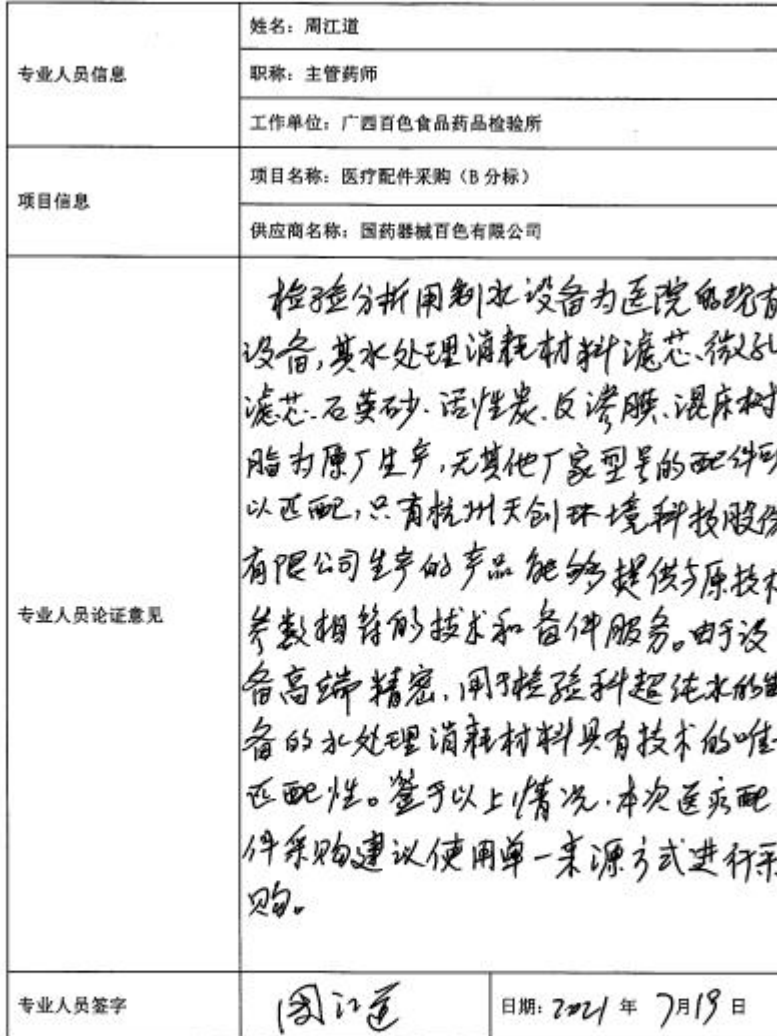 专业人员信息
姓名：周江道
职称：主管药师
工作单位：广西百色食品药品检验所
项目信息
项目名称：医疗配件采购（B分标）
供应商名称：国药器械百色有限公司
专业人员论证意见
检验分析用制水设备为医院的现有
设备,其水处理消耗材料滤芯、微孔
滤芯、石英砂、活性炭、反渗膜、混床树
脂为原厂生产,无其他厂家型号的配件可
以匹配,只有杭州天创环境科技股份
有限公司生产的产品能够提供与原技术
参数相符的技术和备件服务。由于设
备高端精密,用于检验科超纯水的制
备的水处理消耗材料具有技术的唯一
匹配性。鉴于以上情况,本次医疗配
件采购建议使用单一来源方式进行采
购。
专业人员签字
周江道
日期：2021年7月19日